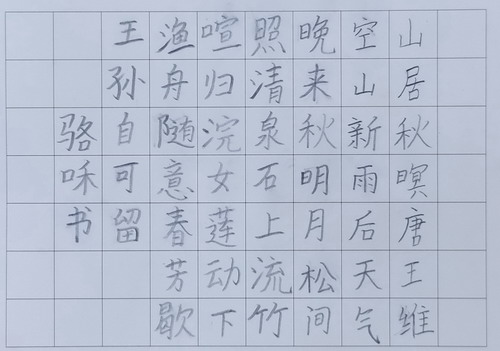 山居秋暝唐王维
空山新雨后天气
晚来秋明月松间
照清泉石上流竹
喧归浣女莲动下
渔舟随意春芳歇
王孙自可留
骆咊书